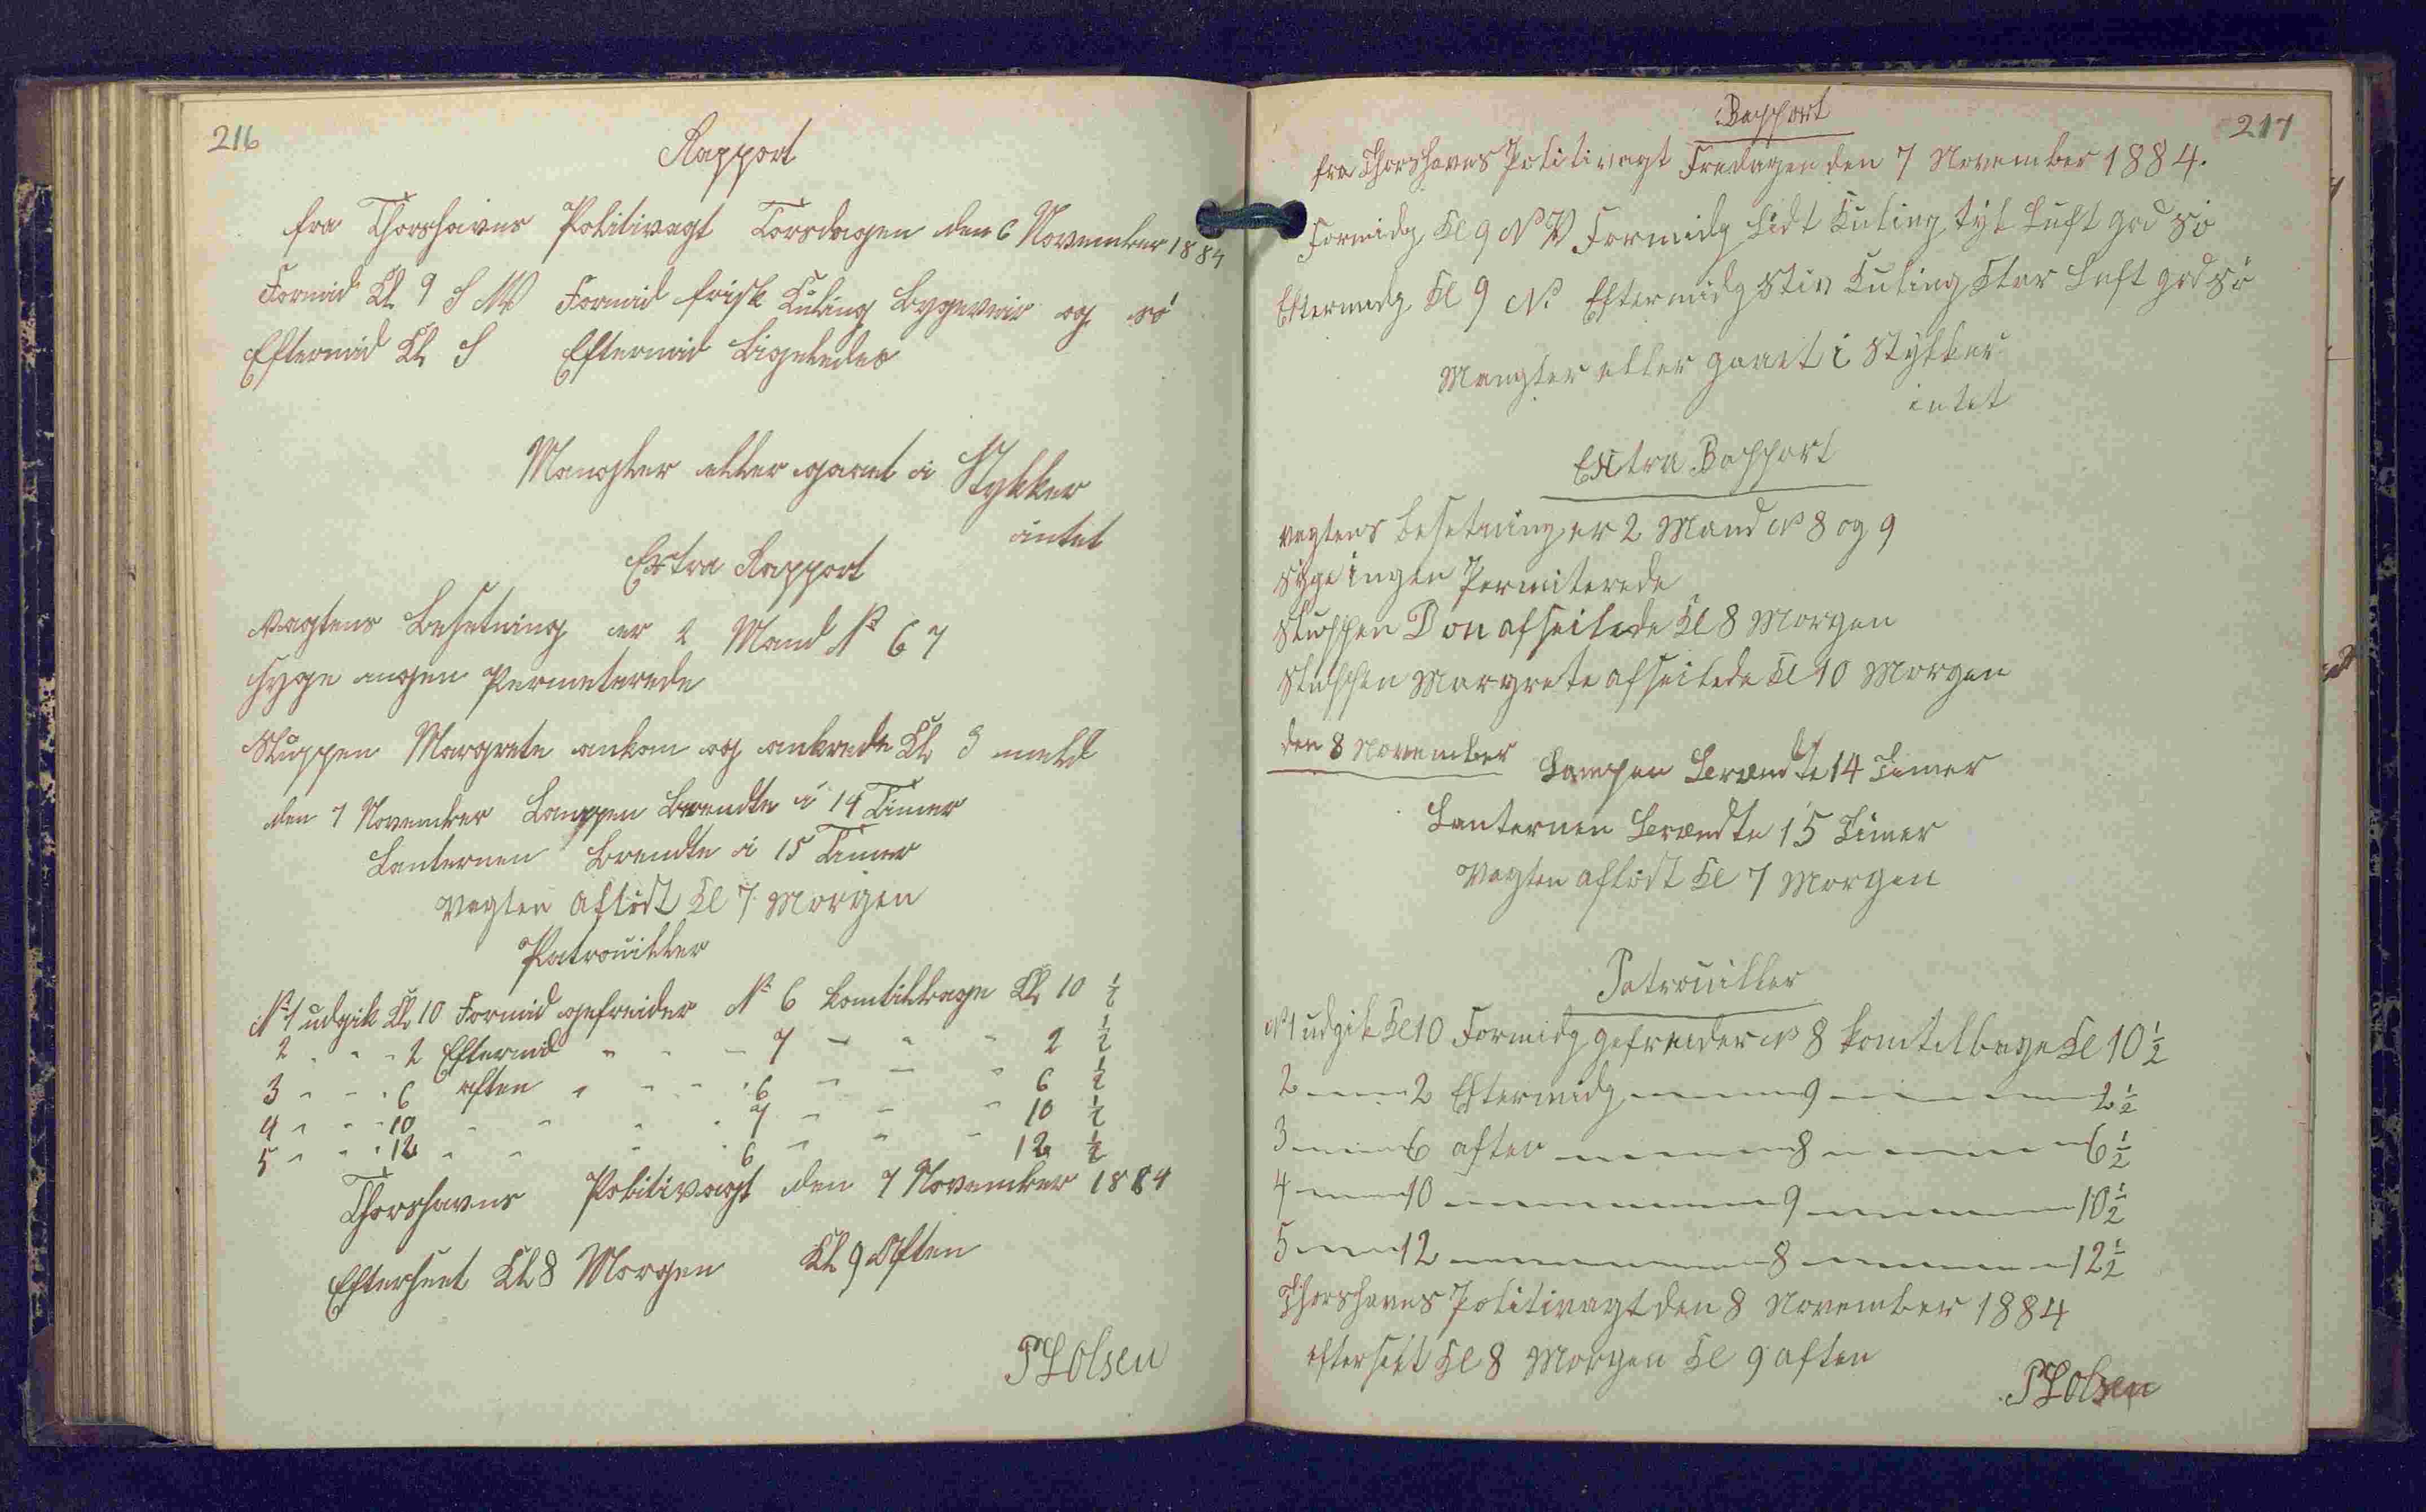 216
Rapport
fra Thorshavns Politivagt Torsdagen den 6 November 1884
Formid Kl 9 S W Formid frisk Kuling Bygeveir og sö
Eftermid Kl S Eftermid Ligeledes
Mangler eller gaaet i Stykker
intet
Extra Rapport
Vagtens Besetning er 2 Mand No 6 7
syge ingen Permeterede
Sluppen Margrete ankom og ankrede Kl 3
den 7 November Lampen Brendte i 14 Timer
Lanternen Brendte i 15 Timer
Vagten Aflöst Kl 7 Morgen
Patrouiller
No 1 udgik Kl 10 Formid gefreider No 6 komtilbage Kl 10 1/2
2 " " " 2 Eftermid " " " 7 " " " 2 1/2
3 " " " 6 aften " " " " 6 " " " 6 1/2
4 " " " 10 " " " " 7 " " " 10 1/2
5 " " " 12 " " " " 6 " " " 12 1/2
Thorshavns Politivagt den 7 November 1884
Efterseet Kl 8 Morgen Kl 9 Aften
Olsen
217
Rapport
fra Thorshavns Politivagt Fredagen den 7 November 1884.
Formidg Kl 9 N V Formidg Lidt Kuling tyk Luft god sö
Eftermidg Kl 9 N. Eftermidg Stiv Kuling Klar Luft god sö
Mangler eller gaaet i Stykker
intet
Extra Rapport
Vagtens besetning er 2 Mand No 8 og 9
syge ingen Permiterede
Sluppen Don afseilede Kl 8 Morgen
Sluppen Margrete afseilede Kl 10 Morgen
den 8 November Lampen Brændte 14 Timer
Lanternen Brændte 15 Timer
Vagten aflöst Kl 7 Morgen
Patrouiller
No 1 udgik Kl 10 Formidg gefreider No 8 komtilbage Kl 10 1/2
2 — 2 Eftermidg — 9 — 2 1/2
3 — 6 aften — 8 — 6 1/2
4 — 10 — 9 — 10 1/2
5 — 12 — 8 — 12 1/2
Thorshavns Politivagt den 8 November 1884
efterseet Kl 8 Morgen Kl 9 aften
Olsen